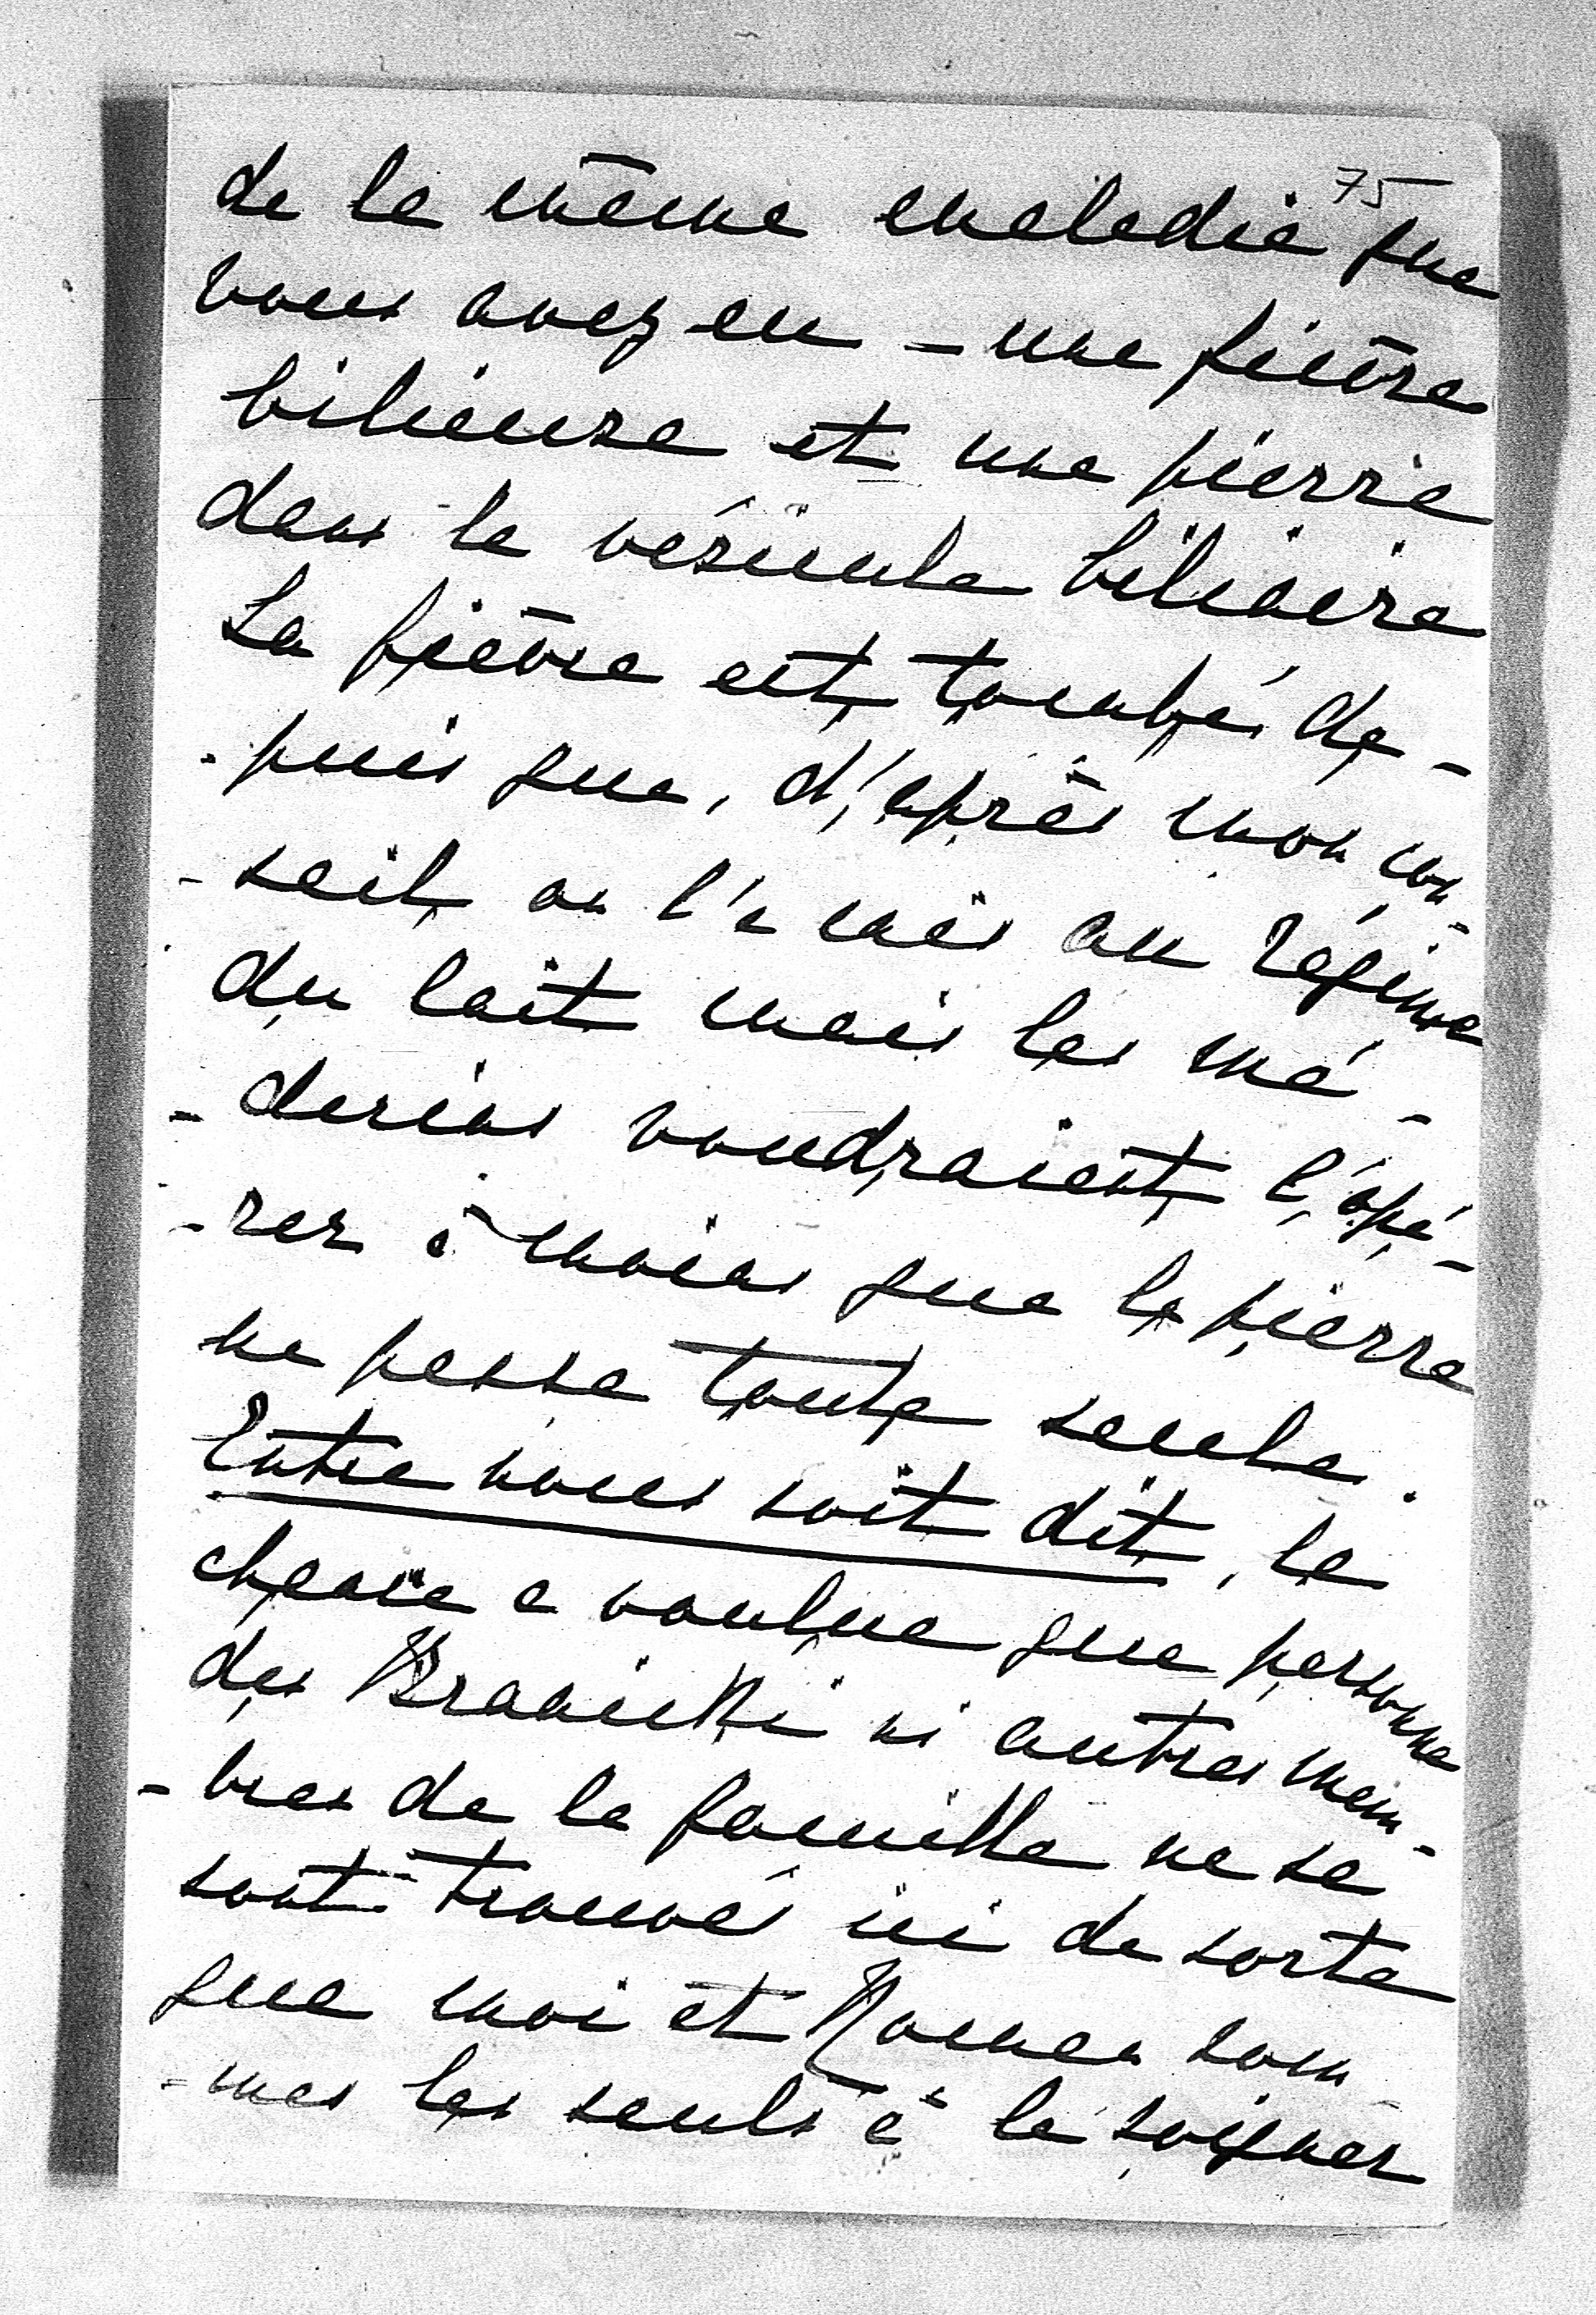 75
de la même maladie que
vous avez eu – une fièvre
bilieuse et une pierre
dans la vésicule biliaire
La fièvre est tombée de-
-puis que, d'après mon con-
-seil on l'a mis au régime
du lait mais les mé-
-decins voudraient l'opé-
-rer à moins que la pierre
ne passe toute seule.
Entre nous soit dit, la
chance a voulue que personne
des Branicki ni autres mem-
-bres de la famille ne se
sont trouvés ici de sorte
que moi et Roman som-
-mes les seuls à le soigner